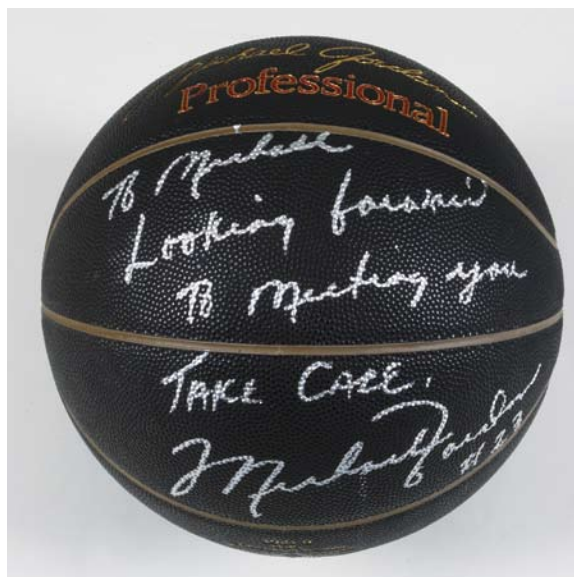 Michael Jordan
Professional
To Michael
Looking forward
To Meeting you
TAKE CARE.
Michael Jordan
#23